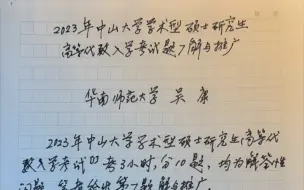 2023年中山大学学术型硕士研究生
高等代数入学考试题7解与推广
华南师范大学 吴康
2023年中山大学学术型硕士研究生高等代
数入学考试[1]考3小时,分10题,均为解答性
问题,笔者给出第7题解与推广.